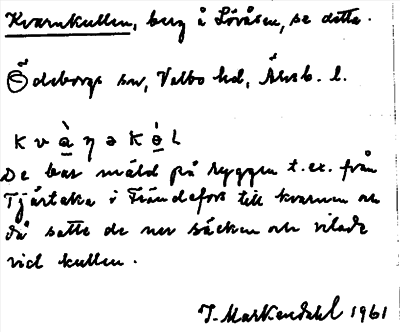 Kvarnkullen, berg å Lövåsen, se detta.
Ödeborgs sn, Valbo hd, Älvsb. l.
k v à ŋ ə k ɵ̀ l
De bar mäld på ryggen t.ex. från
Tjärtaka i Frändefors till kvarnen och
då satte de ner säcken och vilade
vid kullen.
J. Markendahl 1961